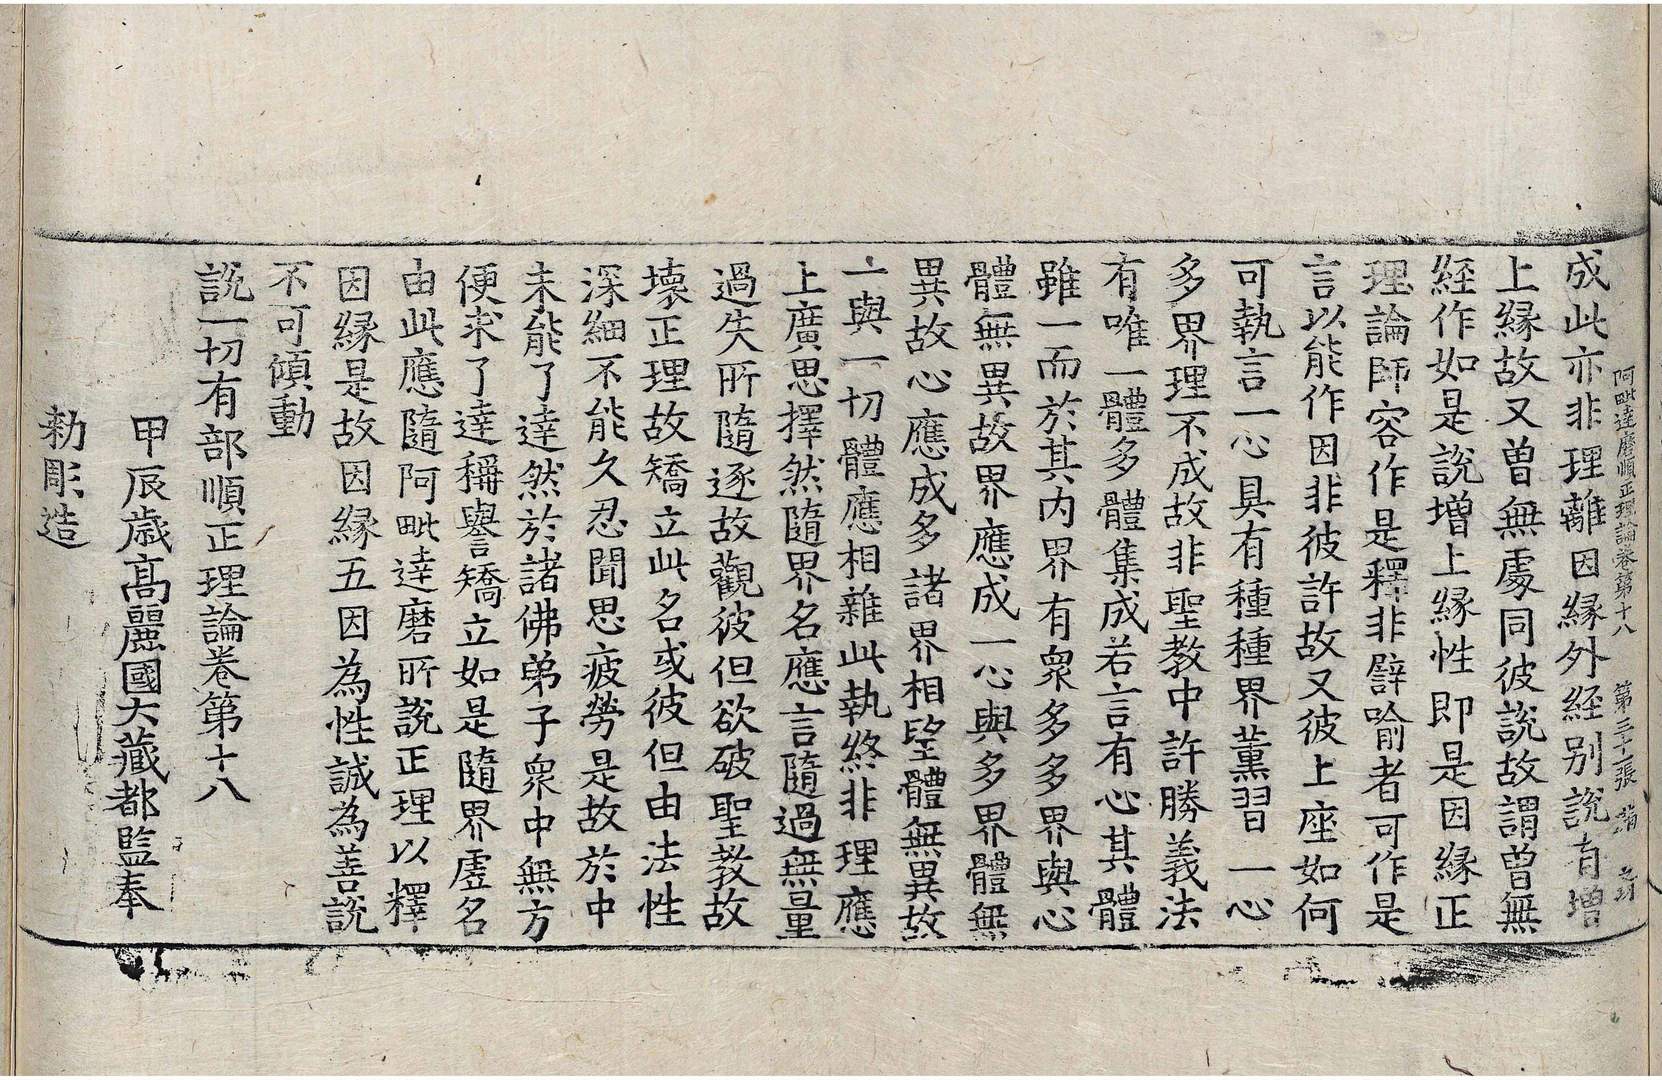 阿毗達磨順正理論卷第十八 第三十二張
成此亦非理離因緣外經別說有增
上緣故又曾無處同彼說故謂曾無
經作如是說增上緣性即是因緣正
理論師容作是釋非譬喻者可作是
言以能作因非彼許故又彼上座如何
可執言一心具有種種界薰習一心
多界理不成故非聖教中許勝義法
有唯一體多體集成若言有心其體
雖一而於其內界有衆多多界與心
體無異故界應成一心與多界體無
異故心應成多諸界相望體無異故
一與一切體應相雜此執終非理應
上廣思擇然隨界名應言隨過無量
過失所隨逐故觀彼但欲破聖教故
壞正理故矯立此名或彼但由法性
深細不能久忍聞思疲勞是故於中
未能了達然於諸佛弟子衆中無方
便求了達稱譽矯立如是隨界虛名
由此應隨阿毗達磨所說正理以釋
因緣是故因緣五因為性誠為善說
不可傾動
說一切有部順正理論卷第十八
甲辰歲高麗國大藏都監奉
勑彫造